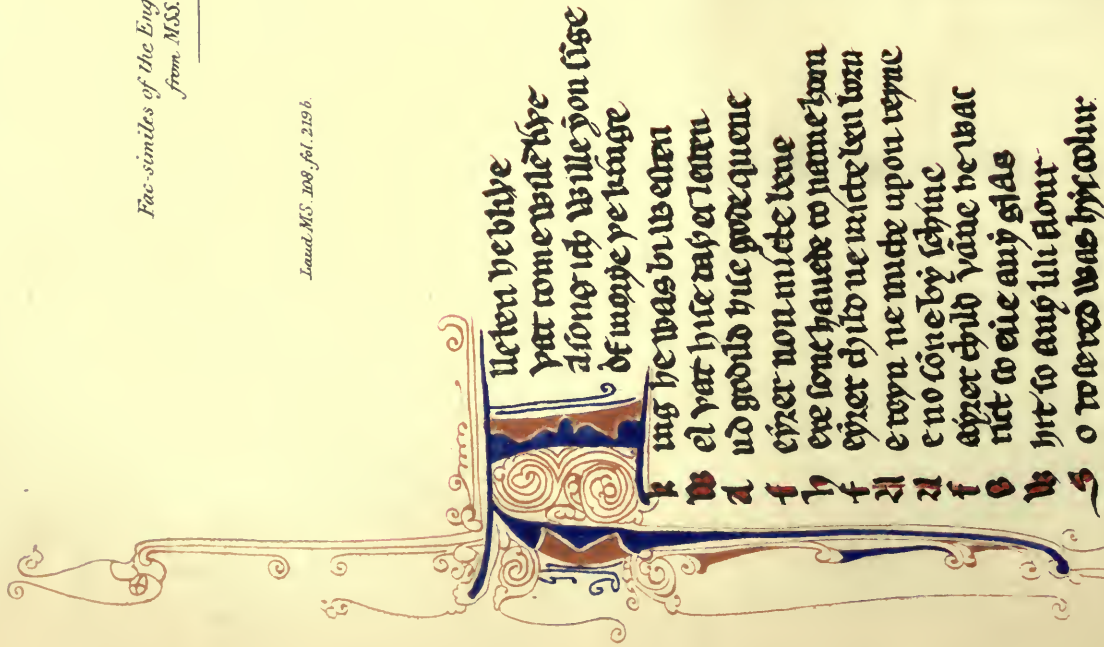 Fac-similes of the Eng
from MSS.
Laud MS. 108. fol. 219 b.
Alle ben he bliþe
þat to me wilē liþe
A song ich wille you sīge
Of morye þe kinge
King he was bi westen
Wel þat hise dayes lesten
And godild hise gode quene
Feyrer non micte bene
Here sone hauede to name horn
Feyrer child ne micte ben born
Ne reyn ne micte upon reyne
Ne no sōne by schine
Fayrer child þāne he was
Brict so eūe any glas
Whit so any lili flour
So rose red was hys colur